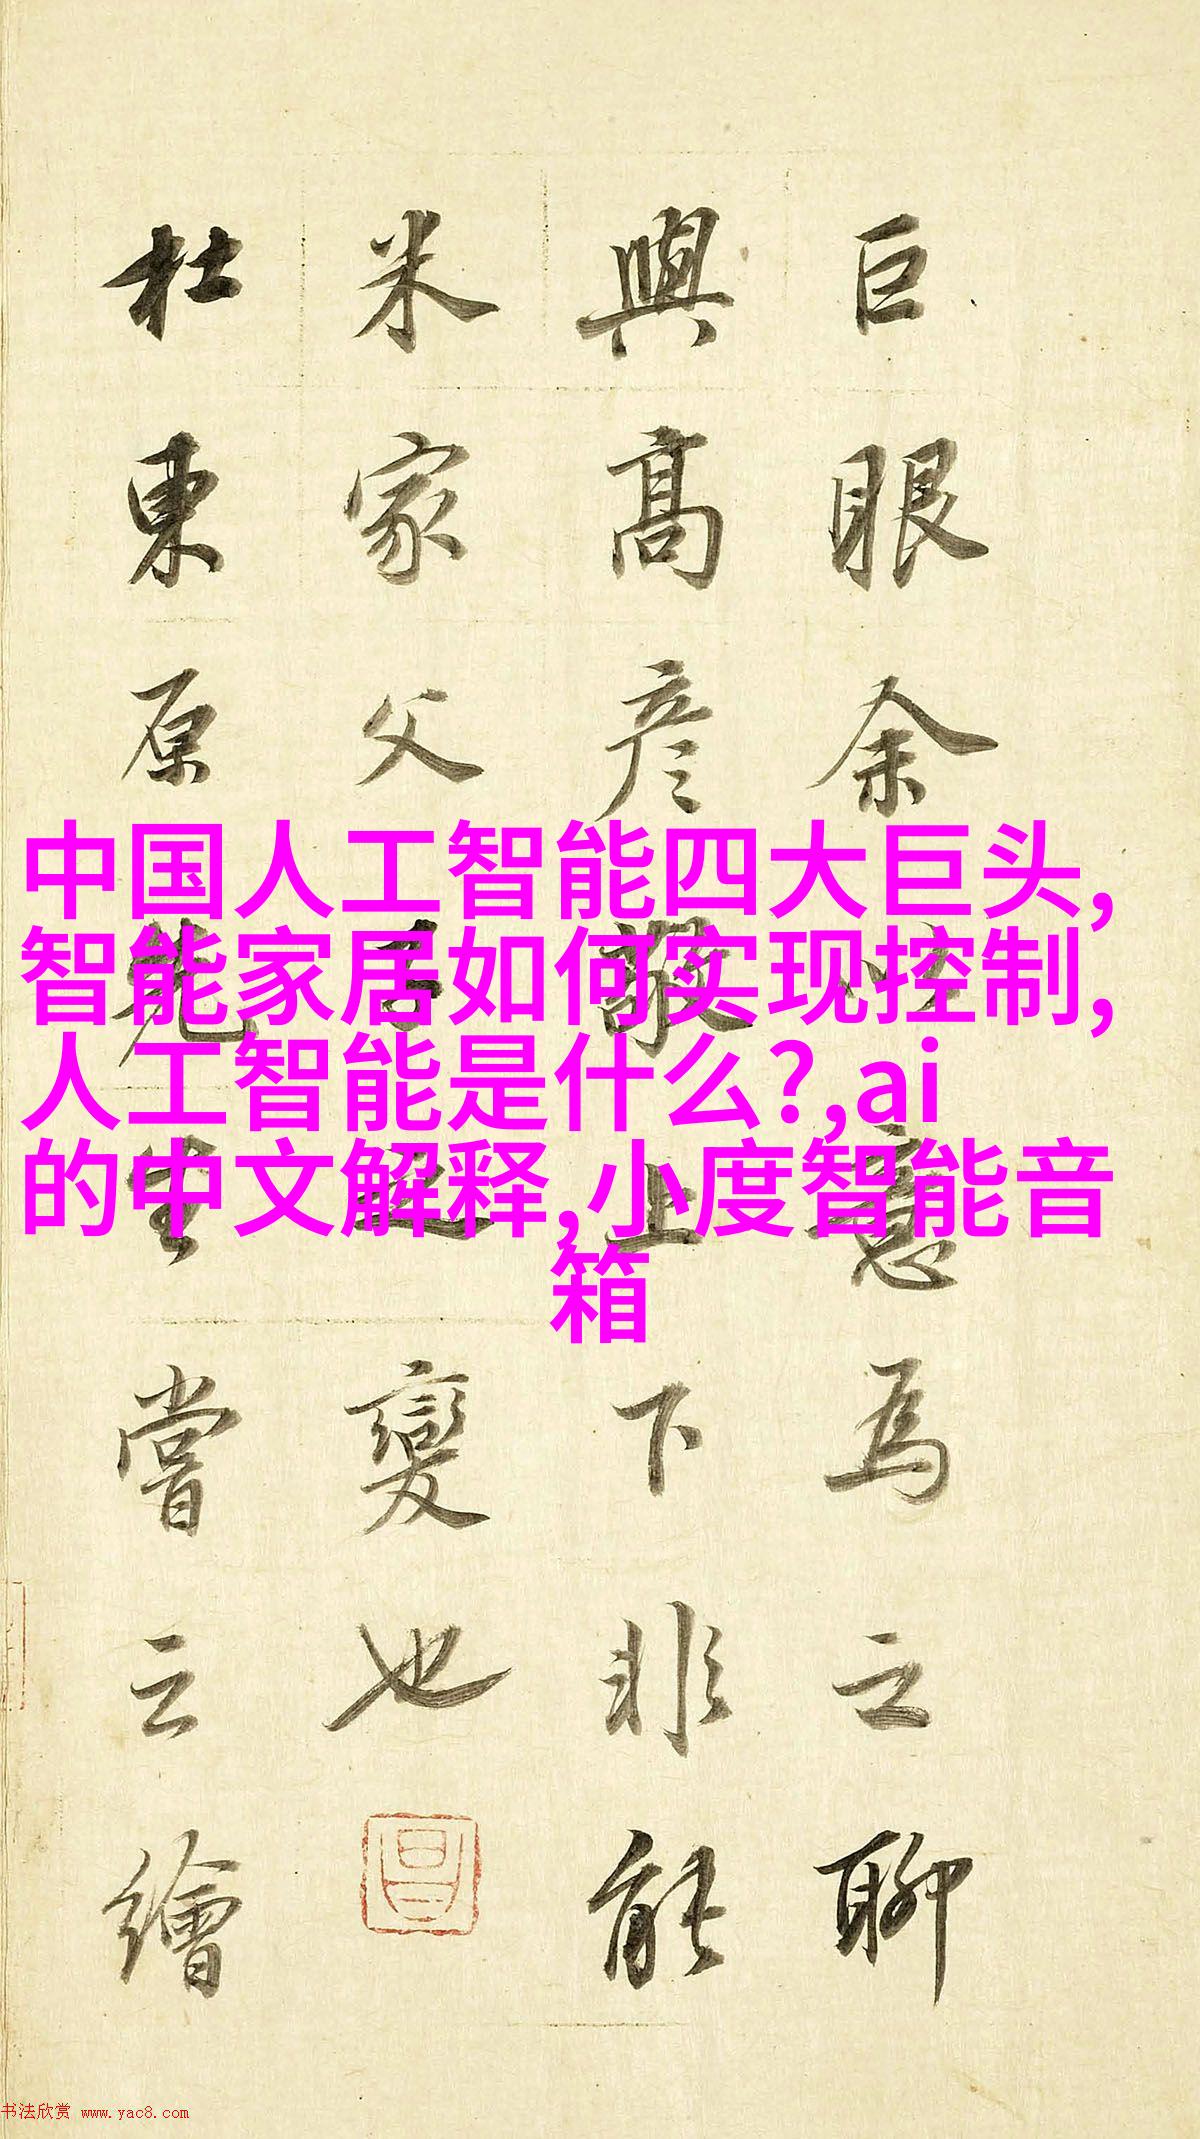 巨眼余
意為之聊
與高彦敬上下非能
米家父
變也
杜東原先生嘗云繪
中国人工智能四大巨头,
智能家居如何实现控制,
人工智能是什么?,ai
的中文解释,小度智能音
箱
书法欣赏 www.yac8.com